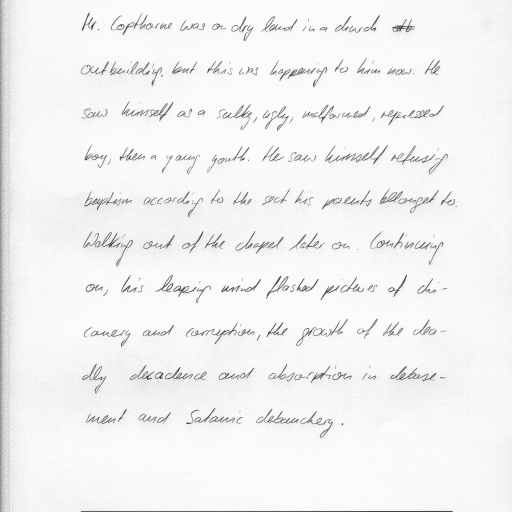 Mr. Copthorne was on dry land in a church
outbuilding, but this was happening to him now. He
saw himself as a sulky, ugly, malformed, repressed
boy, then a young youth. He saw himself refusing
baptism according to the sect his parents belonged to.
Walking out of the chapel later on. Continuing
on, his leaping mind flashed pictures of chi-
canery and corruption, the growth of the dea-
dly decadence and absorption in debase-
ment and Satanic debauchery.